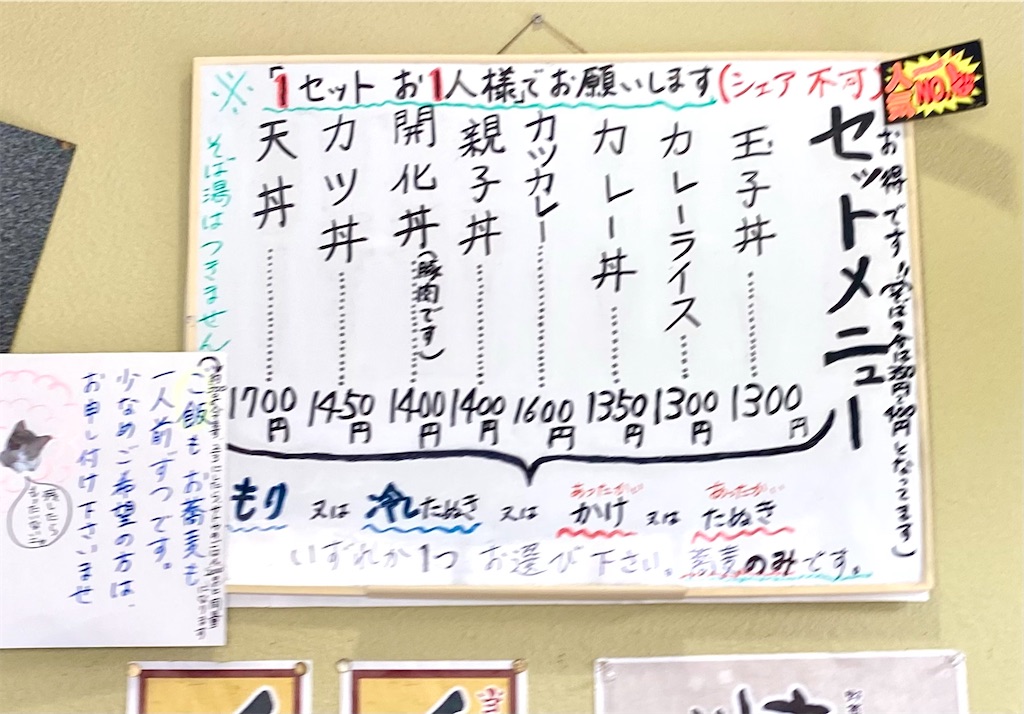 ※「1セット お1人様」でお願いします(シェア 不可)
人気 No.1
セットメニュー
お得です!
玉子丼……1300円
カレーライス……1300円
カレー丼……1350円
カツカレー……1600円
親子丼……1400円
開化丼(豚肉です)……1400円
カツ丼……1450円
天丼……1700円
そば湯はつきません
もり 又は 冷したぬき 又は あったかい かけ 又は あったかい たぬき
いずれか1つ お選び下さい。蕎麦のみです。
ご飯もお蕎麦も
一人前ずつです。
少なめご希望の方は、
お申し付け下さいませ